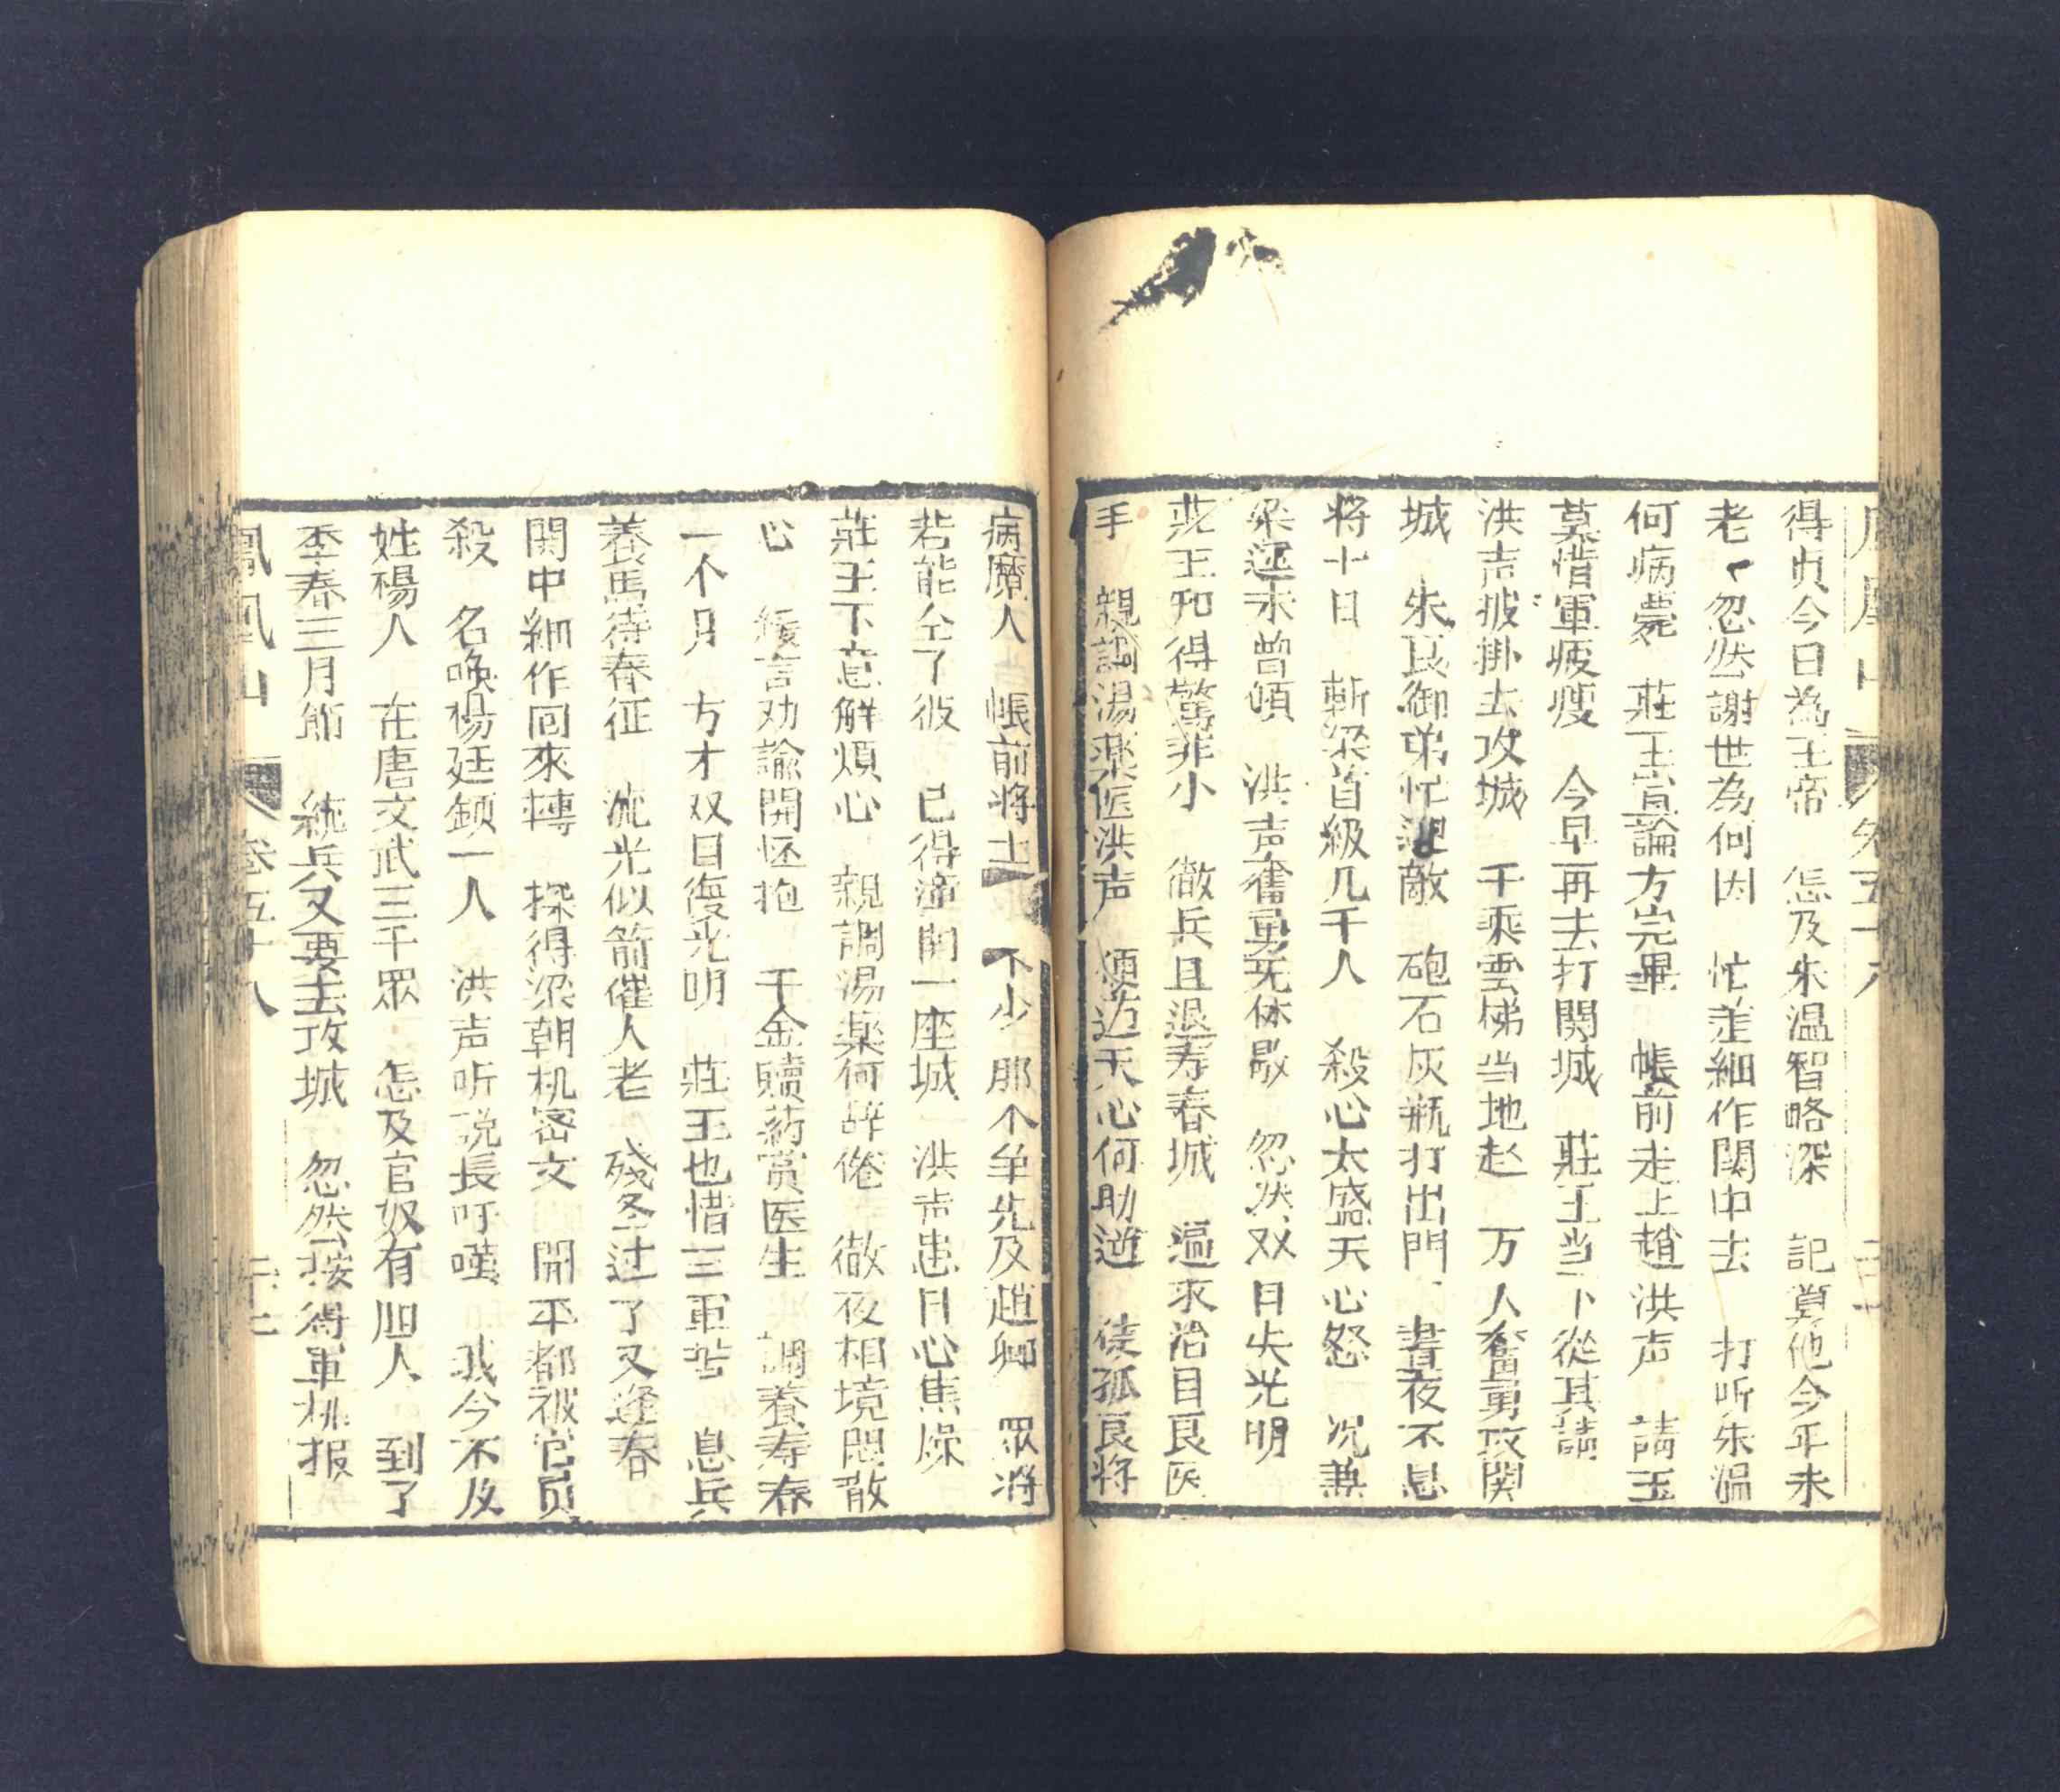 得貞今日為王帝　怎及朱温智略深　記算他今年未
老〻忽然謝世為何因　忙差細作関中去　打听朱温
何病薨　莊王宣論方完畢　帳前走上趙洪声　請玉
莫惜軍疲瘦　今早再去打関城　莊王当下從其請
洪声披掛去攻城　千乘雲梯当地赵　万人奮勇攻関
城　朱良御弟忙迎敵　砲石灰瓶打出門　晝夜不息
将十日　斬梁首級几千人　殺心太盛天心怒　况兼
梁運未曾傾　洪声奮勇无休歇　忽然双目失光明
莊王知得驚非小　撤兵且退寿春城　遍求治目良医
手　親調湯薬医洪声　須边天心何助逆　使孤良将
病魔人　帳前将士　不少　那个年先及趙卿　眾将
若能全了彼　已得這開一座城　洪声患目心焦燥
莊王下意解煩心　親調湯薬何辞倦　徹夜相境悶散
心　緩言劝諭開怀抱　千金贖药赏医生　調養寿春
一个月　方才双目復光明　莊王也惜三軍苦　息兵
養馬待春征　流光似箭催人老　殘冬过了又逢春
関中細作回來轉　探得梁朝机密文　開平都被官员
殺　名喚楊廷鎮一人　洪声听说長吁嘆　我今不及
姓楊人　在唐文武三千眾　怎及官奴有胆人　到了
季春三月節　統兵又要去攻城　忽然接得軍机报
鳳凰山　卷五十八